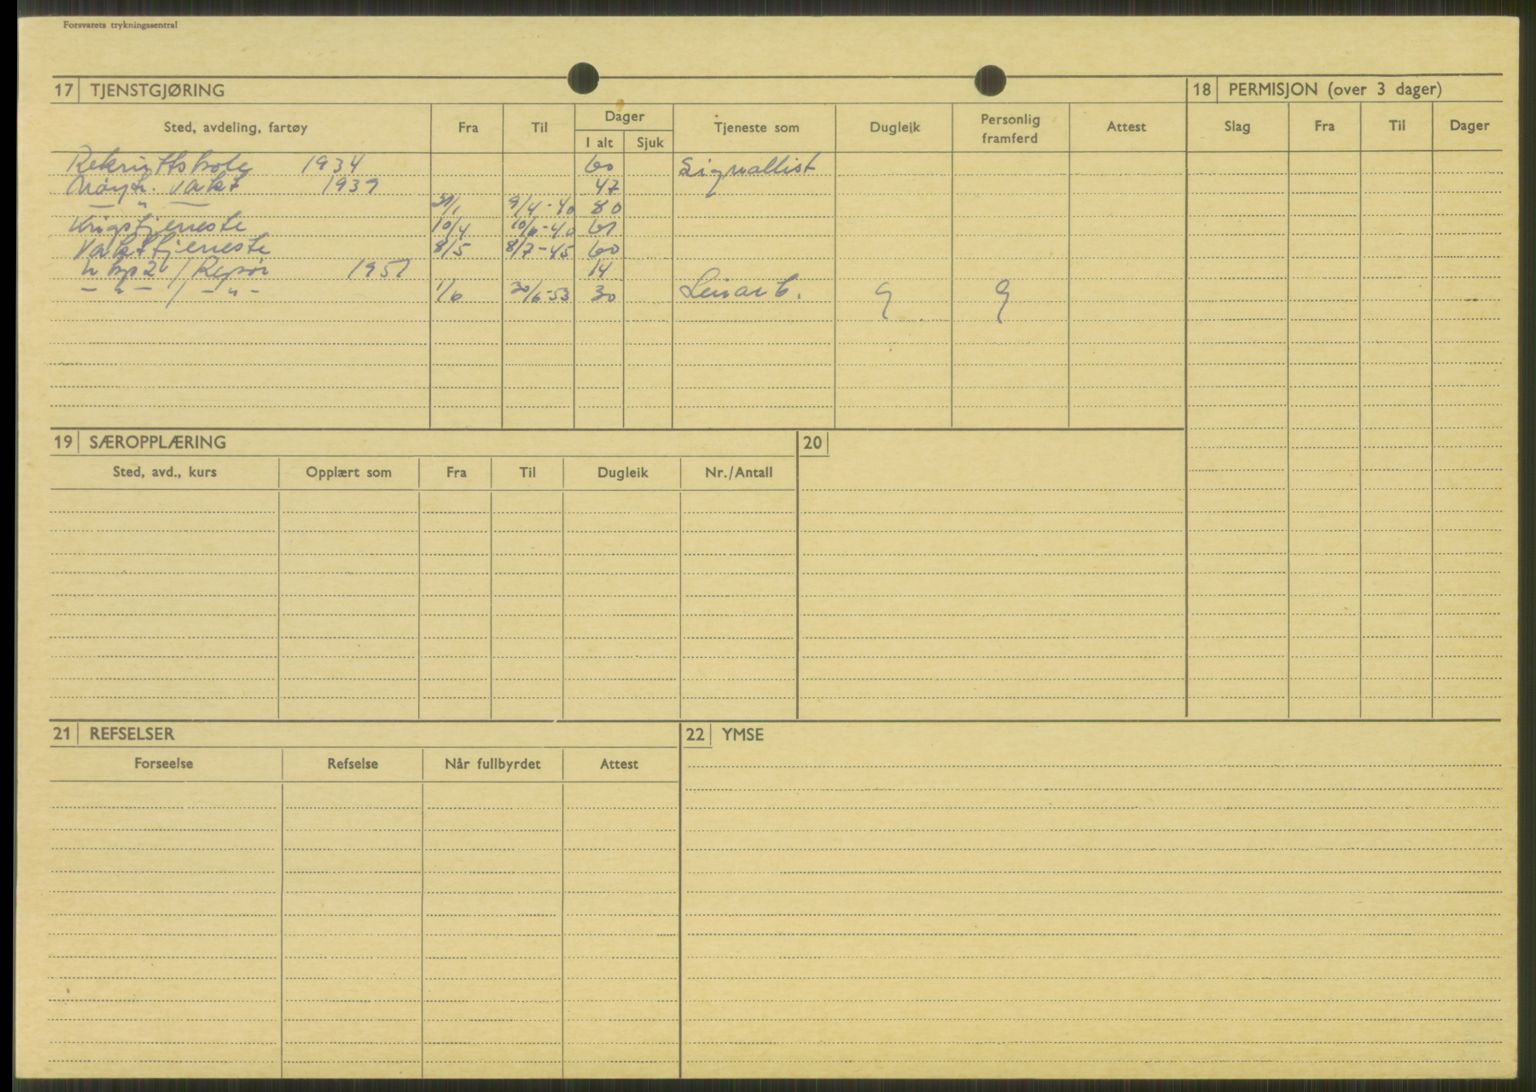 Forsvarets trykningssentral
17 TJENSTGJØRING
18 PERMISJON (over 3 dager)
Sted, avdeling, fartøy Fra Til Dager I alt Sjuk Tjeneste som Dugleik Personlig framferd Attest
Slag Fra Til Dager
Rekruttskole 1934 60 Signallist
Nøytr. vakt 1939 47
— " — 9/4-40 80
Krigstjeneste 10/4 10/6-40 61
Vakttjeneste 8/5 8/7-45 60
/ Repøv 1951 14
— " — / — " — 1/6 30/6-53 30 G G
19 SÆROPPLÆRING
20
Sted, avd., kurs Opplært som Fra Til Dugleik Nr./Antall
21 REFSELSER
22 YMSE
Forseelse Refselse Når fullbyrdet Attest